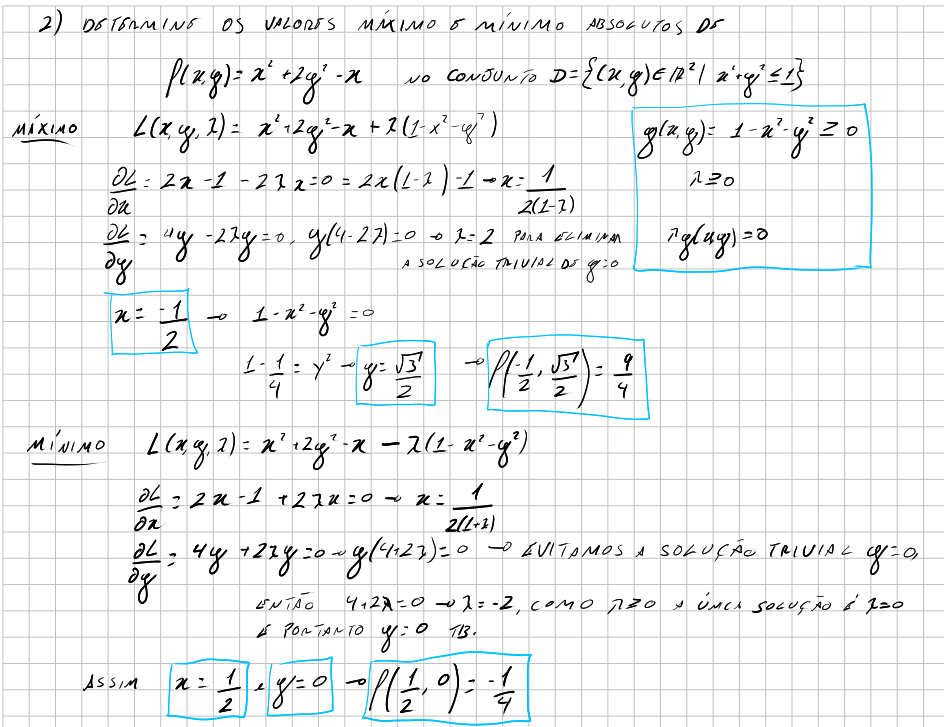 2) DETERMINE OS VALORES MÁXIMO E MÍNIMO ABSOLUTOS DE
f(x,y) = x² + 2y² - x NO CONJUNTO D = {(x,y) ∈ ℝ² | x² + y² ≤ 1}
MÁXIMO L(x,y,λ) = x² + 2y² - x + λ(1 - x² - y²)
g(x,y) = 1 - x² - y² ≥ 0
λ ≥ 0
λg(x,y) = 0
∂L/∂x = 2x - 1 - 2λx = 0 = 2x(1-λ) - 1 → x = 1/2(1-λ)
∂L/∂y = 4y - 2λy = 0, y(4-2λ) = 0 → λ = 2 PARA ELIMINAR
A SOLUÇÃO TRIVIAL DE y = 0
x = -1/2 → 1 - x² - y² = 0
1 - 1/4 = y² → y = √3/2 → f(-1/2, √3/2) = 9/4
MÍNIMO L(x,y,λ) = x² + 2y² - x - λ(1 - x² - y²)
∂L/∂x = 2x - 1 + 2λx = 0 → x = 1/2(1+λ)
∂L/∂y = 4y + 2λy = 0 → y(4+2λ) = 0 → EVITAMOS A SOLUÇÃO TRIVIAL y = 0,
ENTÃO 4 + 2λ = 0 → λ = -2, COMO λ ≥ 0 A ÚNICA SOLUÇÃO É λ = 0
E PORTANTO y = 0 TB.
ASSIM x = 1/2 e y = 0 → f(1/2, 0) = -1/4